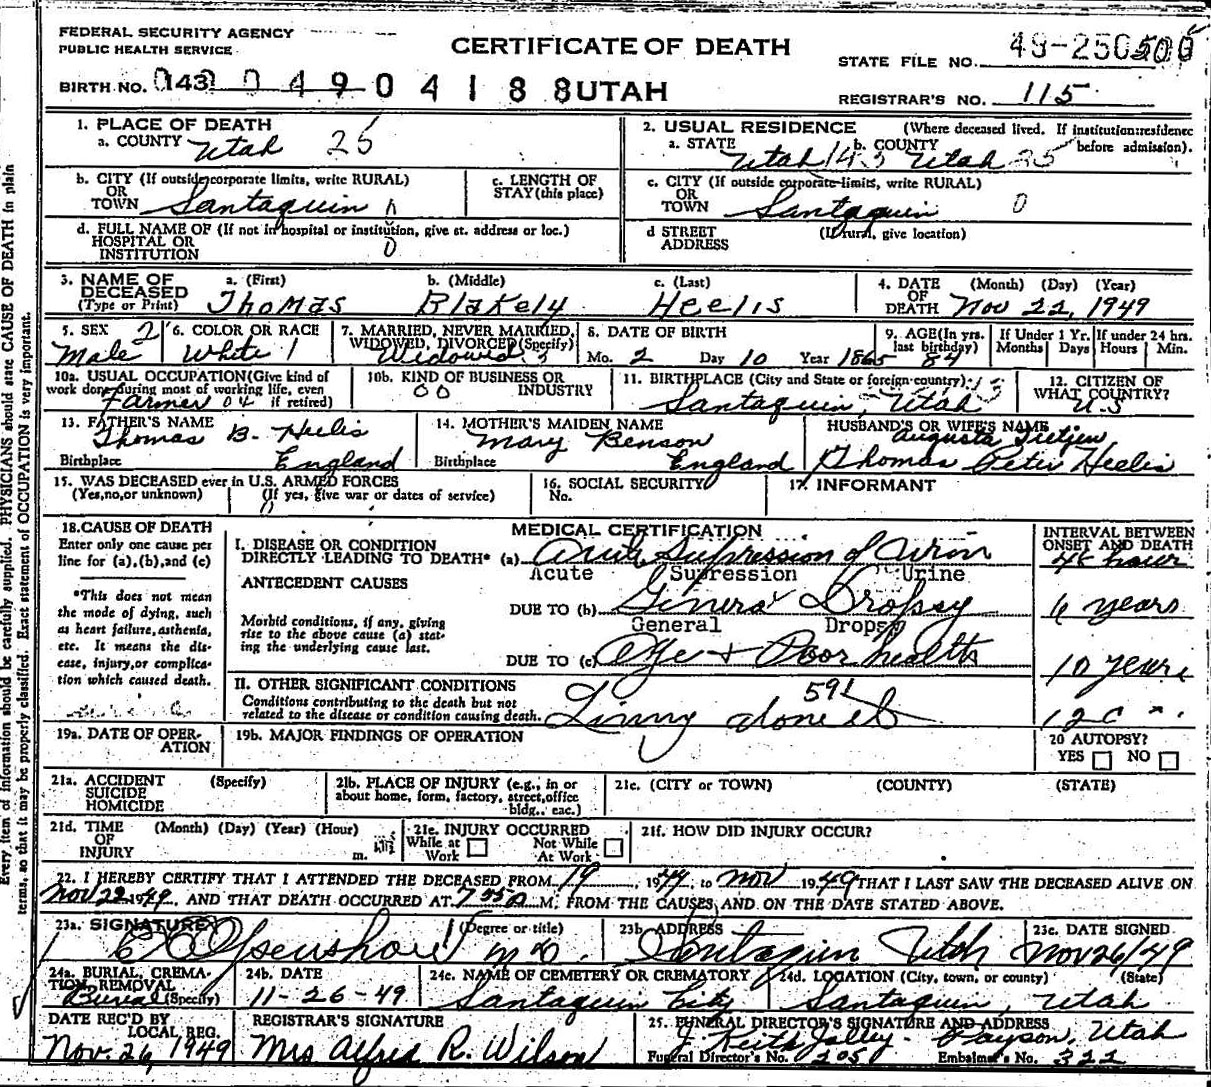 FEDERAL SECURITY AGENCY
PUBLIC HEALTH SERVICE
CERTIFICATE OF DEATH
STATE FILE NO.
BIRTH NO. 143 0 4 9 0 4 1 8 8 UTAH
REGISTRAR'S NO. 115
1. PLACE OF DEATH
a. COUNTY Utah 25
2. USUAL RESIDENCE (Where deceased lived. If institution:residence before admission).
a. STATE Utah 143 b. COUNTY Utah 25
b. CITY (If outside corporate limits, write RURAL)
OR
TOWN Santaquin
c. LENGTH OF
STAY (this place)
c. CITY (If outside corporate limits, write RURAL)
OR
TOWN Santaquin 0
d. FULL NAME OF (If not in hospital or institution, give st. address or loc.)
HOSPITAL OR
INSTITUTION 0
d STREET (If rural, give location)
ADDRESS
3. NAME OF DECEASED (Type or Print)
a. (First) Thomas
b. (Middle) Blakely
c. (Last) Heelis
4. DATE OF DEATH (Month) (Day) (Year)
Nov 22, 1949
5. SEX 2
Male
6. COLOR OR RACE
White 1
7. MARRIED, NEVER MARRIED,
WIDOWED, DIVORCED (Specify)
Widowed 3
8. DATE OF BIRTH
Mo. 2 Day 10 Year 1865
9. AGE (In yrs. last birthday) 84
If Under 1 Yr. Months Days
If under 24 hrs. Hours Min.
10a. USUAL OCCUPATION (Give kind of
work done during most of working life, even
if retired) Farmer 04
10b. KIND OF BUSINESS OR
INDUSTRY 00
11. BIRTHPLACE (City and State or foreign country)
Santaquin, Utah
12. CITIZEN OF
WHAT COUNTRY?
U.S
13. FATHER'S NAME
Thomas B. Heelis
Birthplace England
14. MOTHER'S MAIDEN NAME
Mary Benson
Birthplace England
HUSBAND'S OR WIFE'S NAME
Augusta Tietjen
Thomas Peter Heelis
15. WAS DECEASED ever in U.S. ARMED FORCES
(Yes, no, or unknown) (If yes, give war or dates of service)
16. SOCIAL SECURITY
No.
17. INFORMANT
18. CAUSE OF DEATH
Enter only one cause per
line for (a), (b), and (c)
*This does not mean
the mode of dying, such
as heart failure, asthenia,
etc. It means the dis-
ease, injury, or complica-
tion which caused death.
MEDICAL CERTIFICATION
INTERVAL BETWEEN
ONSET AND DEATH
I. DISEASE OR CONDITION
DIRECTLY LEADING TO DEATH* (a) Acute Supression of Urin
48 hour
Acute Supression Urine
ANTECEDENT CAUSES
Morbid conditions, if any, giving
rise to the above cause (a) stat-
ing the underlying cause last.
DUE TO (b) General Dropsy
6 years
General Dropsy
DUE TO (c) Age + Poor health
10 years
II. OTHER SIGNIFICANT CONDITIONS
Conditions contributing to the death but not
related to the disease or condition causing death.
591
alone
19a. DATE OF OPER-
ATION
19b. MAJOR FINDINGS OF OPERATION
20 AUTOPSY?
YES NO
21a. ACCIDENT (Specify)
SUICIDE
HOMICIDE
21b. PLACE OF INJURY (e.g., in or
about home, form, factory, street, office
bldg., eac.)
21c. (CITY or TOWN) (COUNTY) (STATE)
21d. TIME (Month) (Day) (Year) (Hour)
OF
INJURY m.
21e. INJURY OCCURRED
While at Work Not While At Work
21f. HOW DID INJURY OCCUR?
22. I HEREBY CERTIFY THAT I ATTENDED THE DECEASED FROM 19, 1944, to Nov 1949 THAT I LAST SAW THE DECEASED ALIVE ON
Nov 22 1949, AND THAT DEATH OCCURRED AT M, FROM THE CAUSES, AND ON THE DATE STATED ABOVE.
23a. SIGNATURE (Degree or title)
M D.
23b. ADDRESS
Santaquin Utah
23c. DATE SIGNED
Nov 26/49
24a. BURIAL, CREMA-
TION, REMOVAL
(Specify) Burial
24b. DATE
11-26-49
24c. NAME OF CEMETERY OR CREMATORY
Santaquin City
24d. LOCATION (City, town, or county) (State)
Santaquin, Utah
DATE REC'D BY
LOCAL REG.
Nov. 26, 1949
REGISTRAR'S SIGNATURE
Mrs Alfred R. Wilson
25. FUNERAL DIRECTOR'S SIGNATURE AND ADDRESS
J. Keith Jolley - Payson, Utah
Funeral Director's No. 205 Embalmer's No. 322
Every item of information should be carefully supplied. PHYSICIANS should state CAUSE OF DEATH in plain
terms, so that it may be properly classified. Exact statement of OCCUPATION is very important.